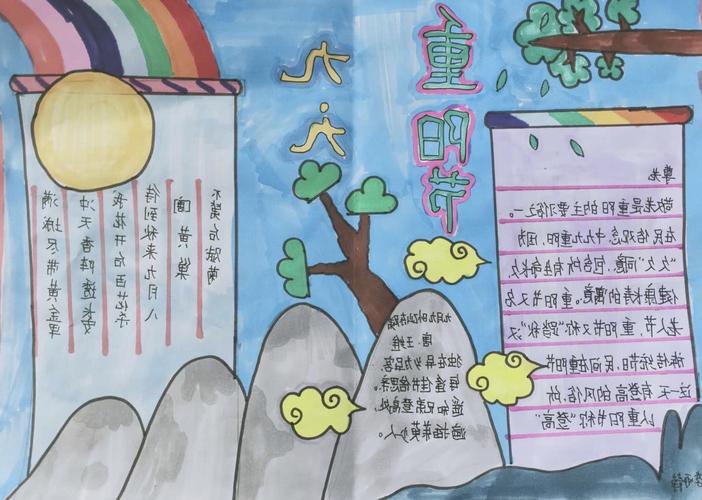 重阳节
九九
不第后赋菊
[唐]黄巢
待到秋来九月八
我花开后百花杀
冲天香阵透长安
满城尽带黄金甲
九月九忆山东
唐 王维
独在异乡为异客
每逢佳节倍思亲。
遥知兄弟登高处,
遍插茱萸少人。
尊老
敬老是重阳的主要习俗之一。
在民俗观念中九九重阳,因为
"久久"同意,包含所有生命长久
健康长寿的寓意。重阳节又名
老人节,重阳节又称"踏秋"汉
族传统节日,民间在重阳节
这一天有登高的风俗,所
以重阳节称"登高"